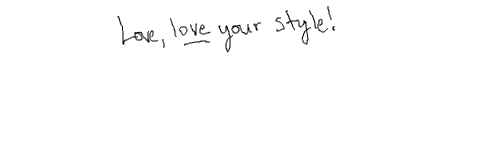 Love, love your style!